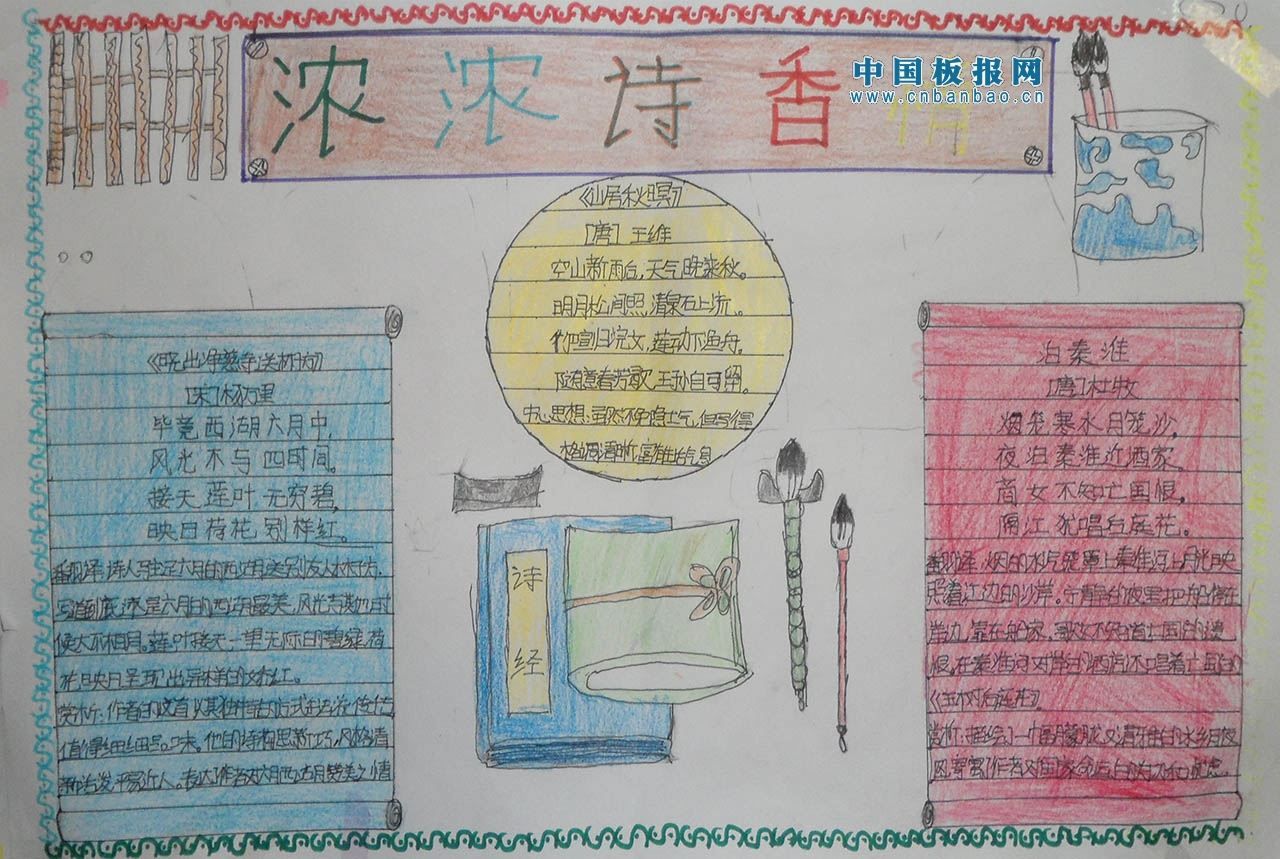 浓浓诗香情
中国板报网
www.cnbanbao.cn
《山居秋暝》
[唐] 王维
空山新雨后,天气晚来秋。
明月松间照,清泉石上流。
竹喧归浣女,莲动下渔舟。
随意春芳歇,王孙自可留。
《晓出净慈寺送林子方》
[宋]杨万里
毕竟西湖六月中,
风光不与四时同。
接天莲叶无穷碧,
映日荷花别样红。
翻译:诗人写在六月的西湖送别友人林子方,
写道到底是六月的西湖最美,风光与其他时
候大不相同。莲叶接天一望无际的碧绿,荷
花映日呈现出异样的娇红。
赏析:作者的这首以其独特的方式
值得细细品味。他的诗构思新巧,风格清
新活泼平易近人。表达作者对六月西湖赞美之情
诗经
泊秦淮
[唐]杜牧
烟笼寒水月笼沙,
夜泊秦淮近酒家。
商女不知亡国恨,
隔江犹唱后庭花。
翻译:烟的水汽笼罩上秦淮河上月光映
照着江边的沙岸。宁静的夜里把船停在
岸边,靠在酒家,歌女不知道亡国的遗
恨,在秦淮河对岸的酒房还唱着亡国的
《玉树后庭花》。
赏析:描绘了一幅朦胧又清冷的水乡月夜
图,寄寓作者对国家命运的关切和忧虑。